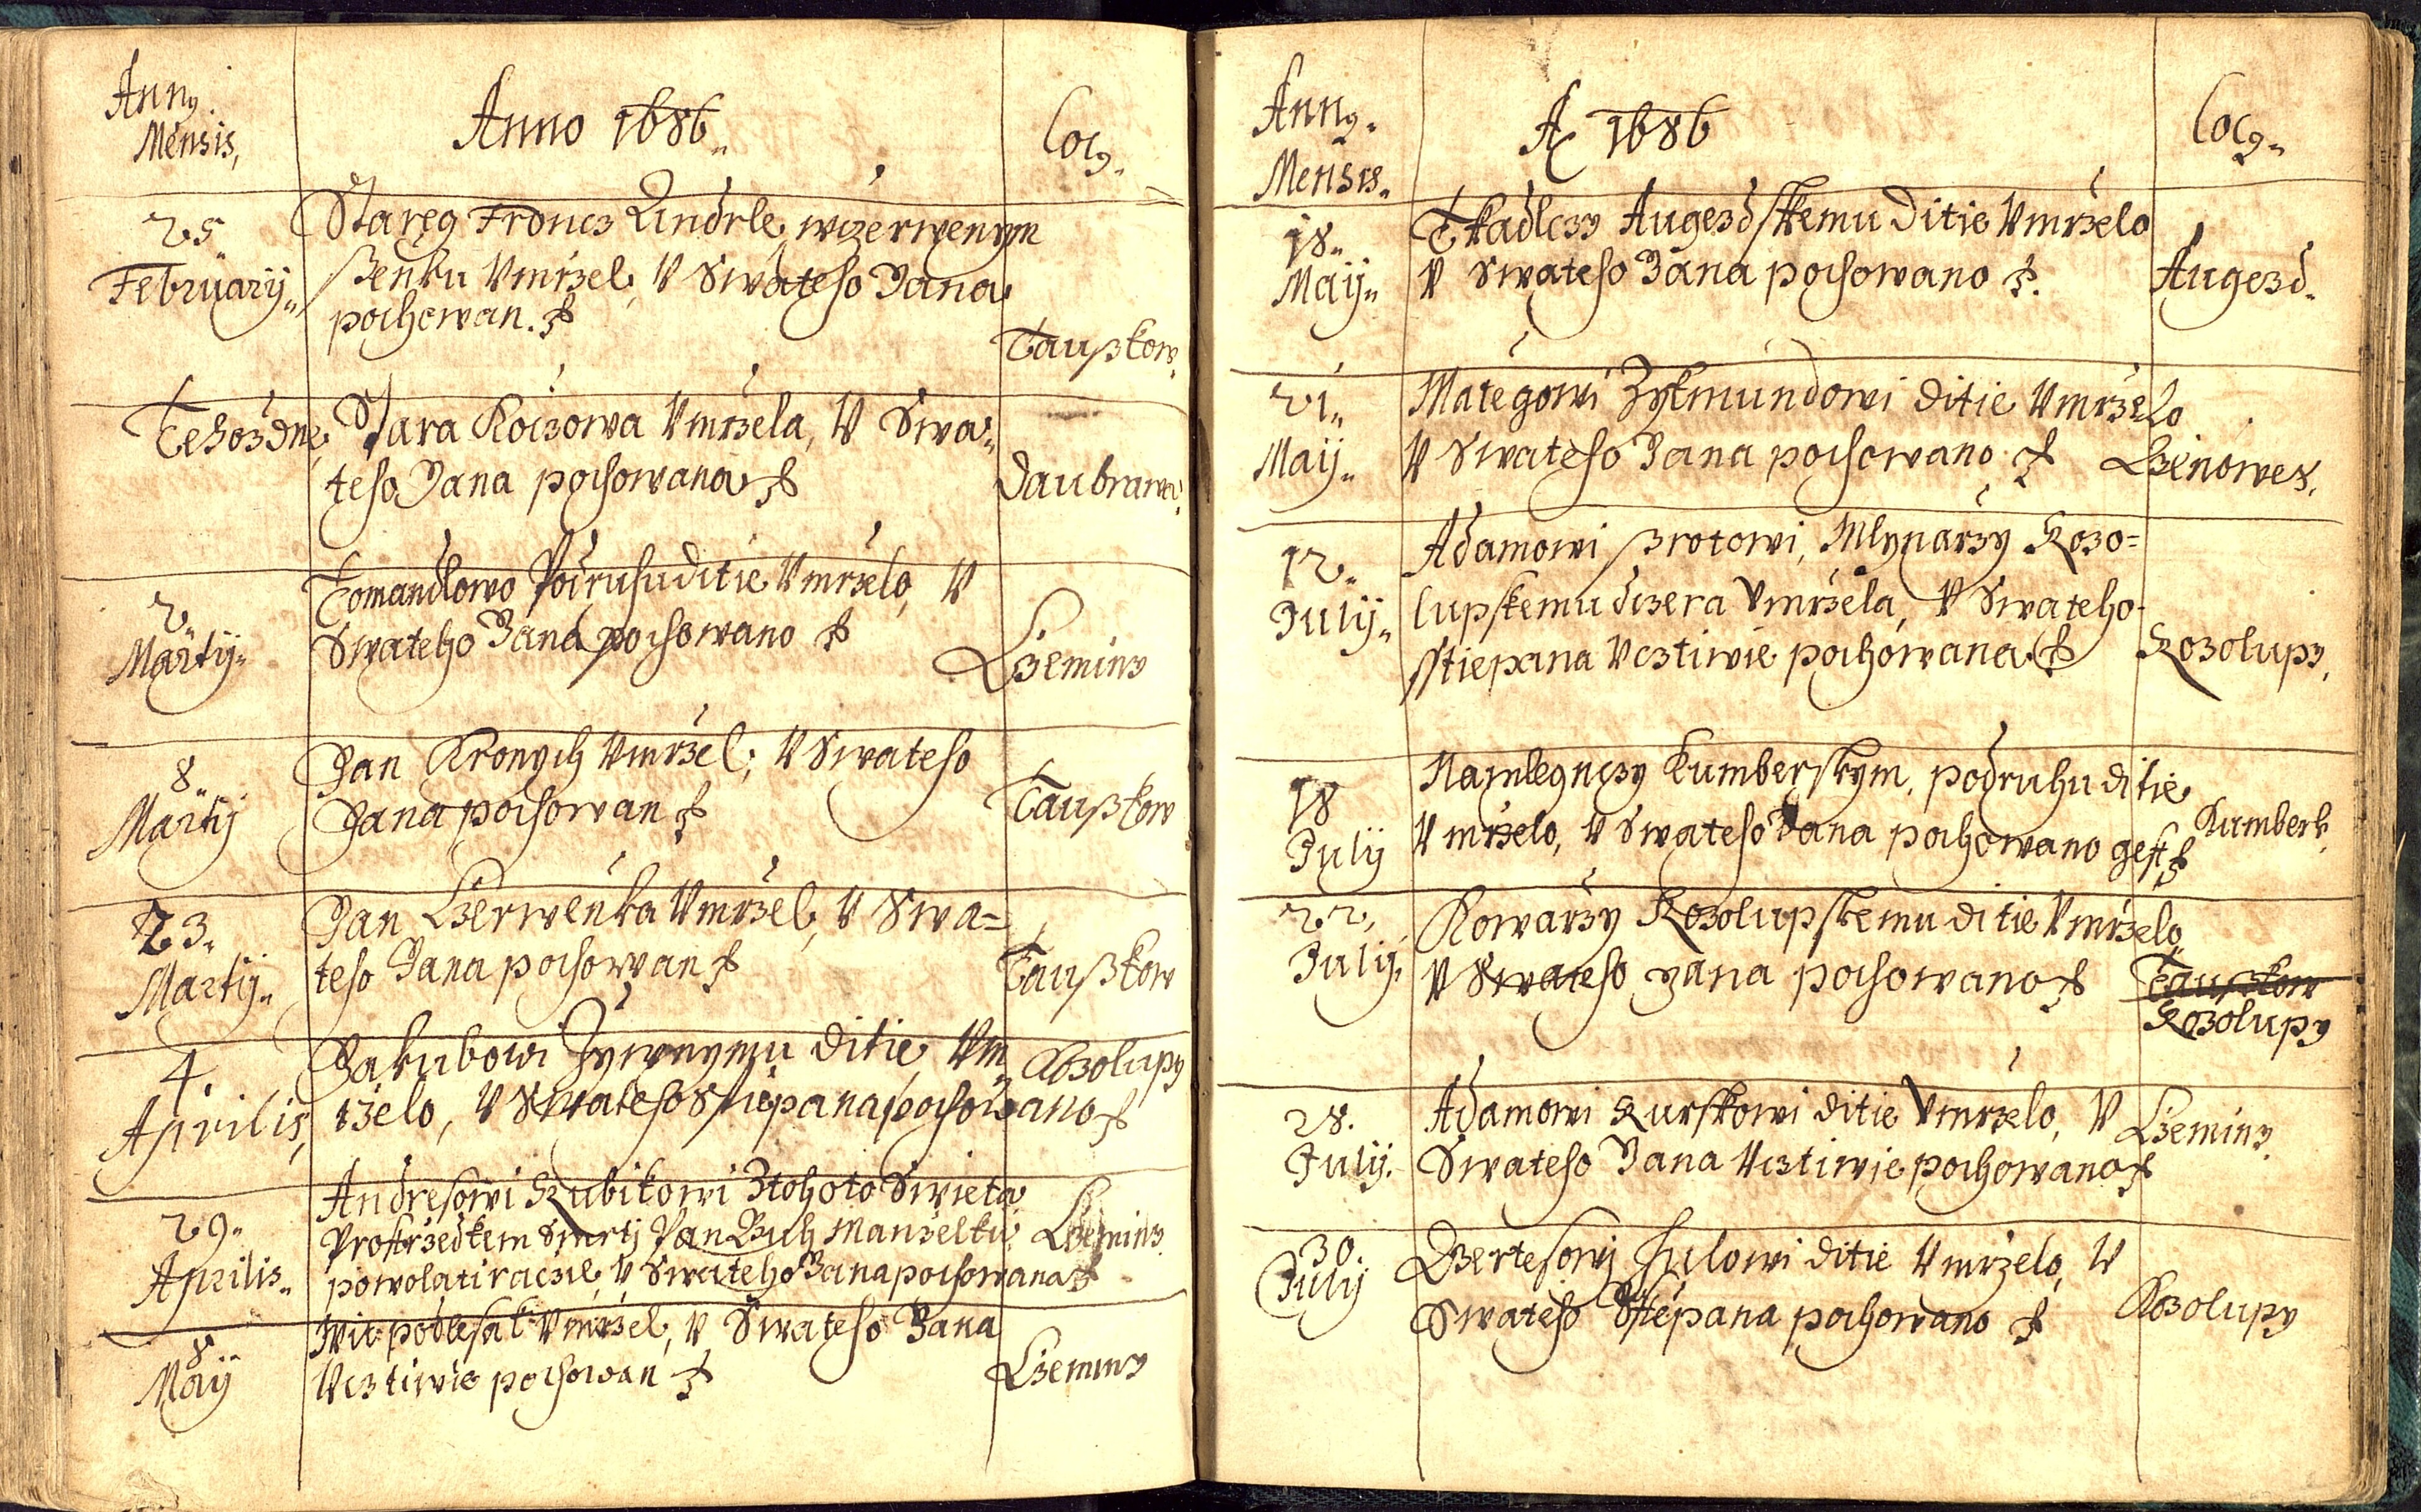 Anny.
Mensis,
Anno 1686.
Locy.
25
February
Stareg Froncz Lindrle, wczerwenym
ssenku Vmrzel, V Swateho Jana
pochowan.
Taußkow.
Tehozdne,
Stara Koczowa Vmrzela, V Swa-
teho Jana pochowana
Daubrawa.
2.
Martij
Tomandlowo Podruhu ditie Vmrzelo, V
Swateho Jana pochowano
Czeminy
8.
Martij
Jan Kronych Vmrzel, V Swateho
Jana pochowan
Taußkow
23.
Martij
Jan Czerwenka Vmrzel, V Swa=
teho Jana pochowan
Taußkow
4.
Aprilis,
Jakubowi Zywnymu ditie, Vm
rzelo, V Swateho Stiepana pochowano
Kozolupy
29.
Aprilis.
Andresowi Kubikowi Ztohoto Swieta
Prostrzedkem Smrtj Pan Buh Manzelku
powolati raczil, V Swateho Jana pochowana
Czeminy
8
Maij
Wit podlesak Vmrzel, V Swateho Jana
Vcztiwie pochowan
Czeminy
Anny.
Mensis.
A 1686
Locy.
18.
Maij
Tkadlczy Augezdskemu Ditie Vmrzelo
V Swateho Jana pochowano
Augezd.
21.
Maij
Mategowi Zykmundowi ditie Vmrzelo
V Swateho Jana pochowano
Czenowes.
12.
Julij
Adamowi ssrotowi, Mlynarzy Kozo=
lupskemu dczera Vmrzela, V Swateho
Stiepana Vcztiwie pochowana
Kozolupy.
18
Julij
Namlegnczy Kumberskym, podruhu ditie
Vmrzelo, V Swateho Jana pochowano gest
Kumberk.
22,
Julij.
Kowarzy Kozolupskemu ditie Vmrzelo
V Swateho Jana pochowano
Taußkow
Kozolupy
28.
Julij.
Adamowi Kurskowi ditie Vmrzelo, V
Swateho Jana Vcztiwie pochowano
Czeminy.
30.
Julij
Bertesowj Hulowi ditie Vmrzelo, V
Swateho Stiepana pochowano
Kozolupy